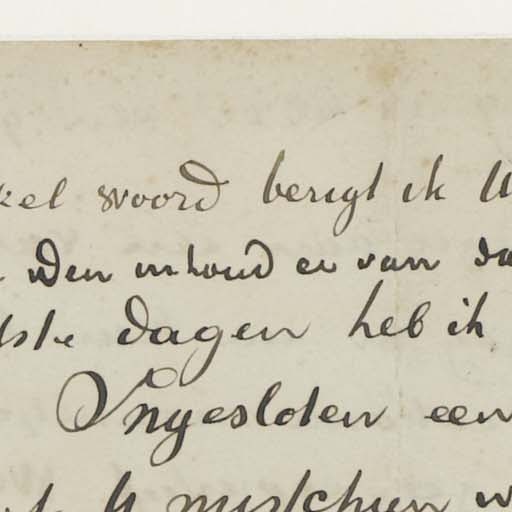 kel woord berigt ik U
den inhoud er van da
dste dagen heb ik
Ingesloten een
U misschien